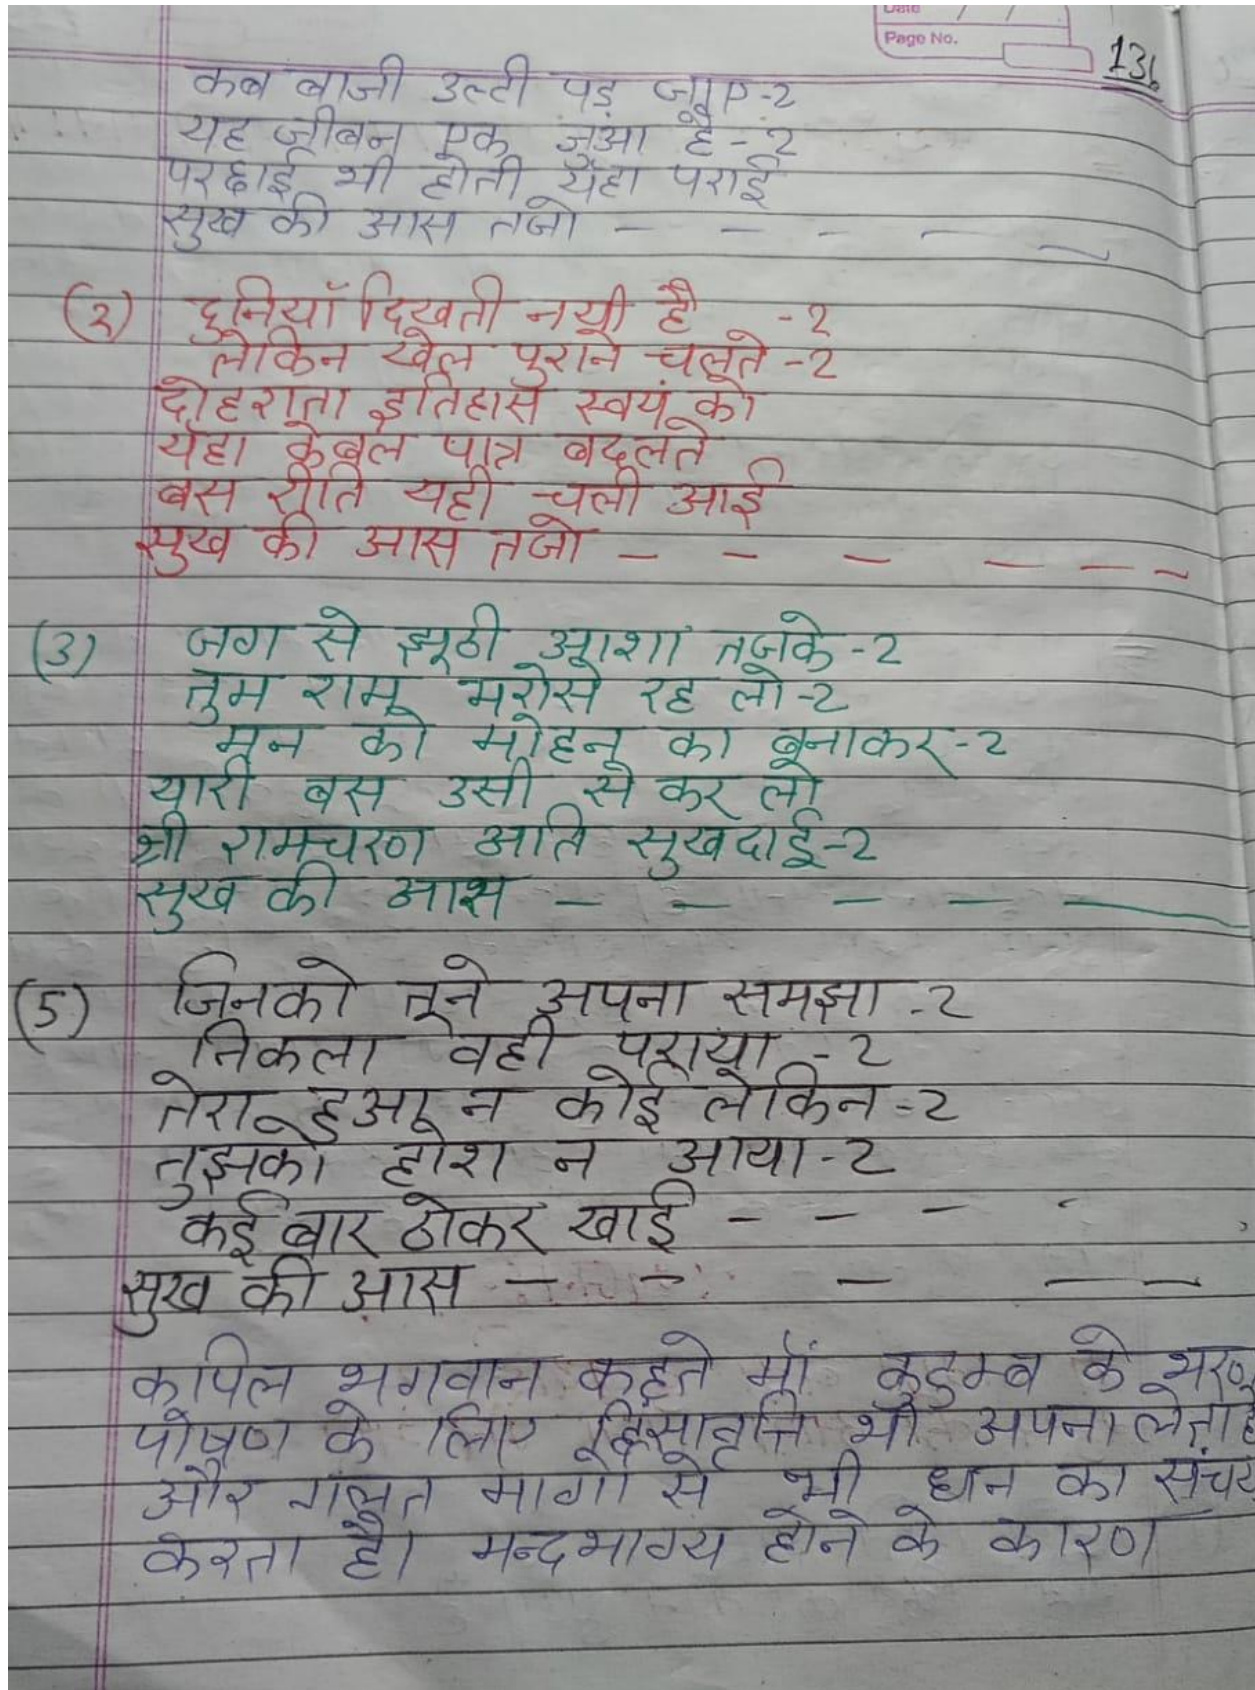 Date / /
Page No.
136
कब बाजी उल्टी पड़ जाए-2
यह जीबन एक जुआ है-2
परछाई भी होती यँहा पराई
सुख की आस तजो - - - - -
(2) दुनियाँ दिखती नयी है -2
लेकिन खेल पुराने चलते-2
दोहराता इतिहास स्वयं को
यँहा केबल पात्र बदलते
बस रीति यही चली आई
सुख की आस तजो - - - - - -
(3) जग से झूठी आशा तजके-2
तुम राम भरोसे रह लो-2
मन को मोहन का बनाकर-2
यारी बस उसी से कर लो
श्री रामचरण अति सुखदाई-2
सुख की आस - - - - -
(5) जिनको तूने अपना समझा-2
निकला वही पराया-2
तेरा हुआ न कोई लेकिन-2
तुझको होश न आया-2
कई बार ठोकर खाई - - - -
सुख की आस - - - - -
कपिल भगवान कहते माँ कुटुम्ब के भरण
पोषण के लिए हिंसावृत्ति भी अपना लेता है
और गलत मार्गो से भी धन का संचय
करता है। मन्दभाग्य होने के कारण